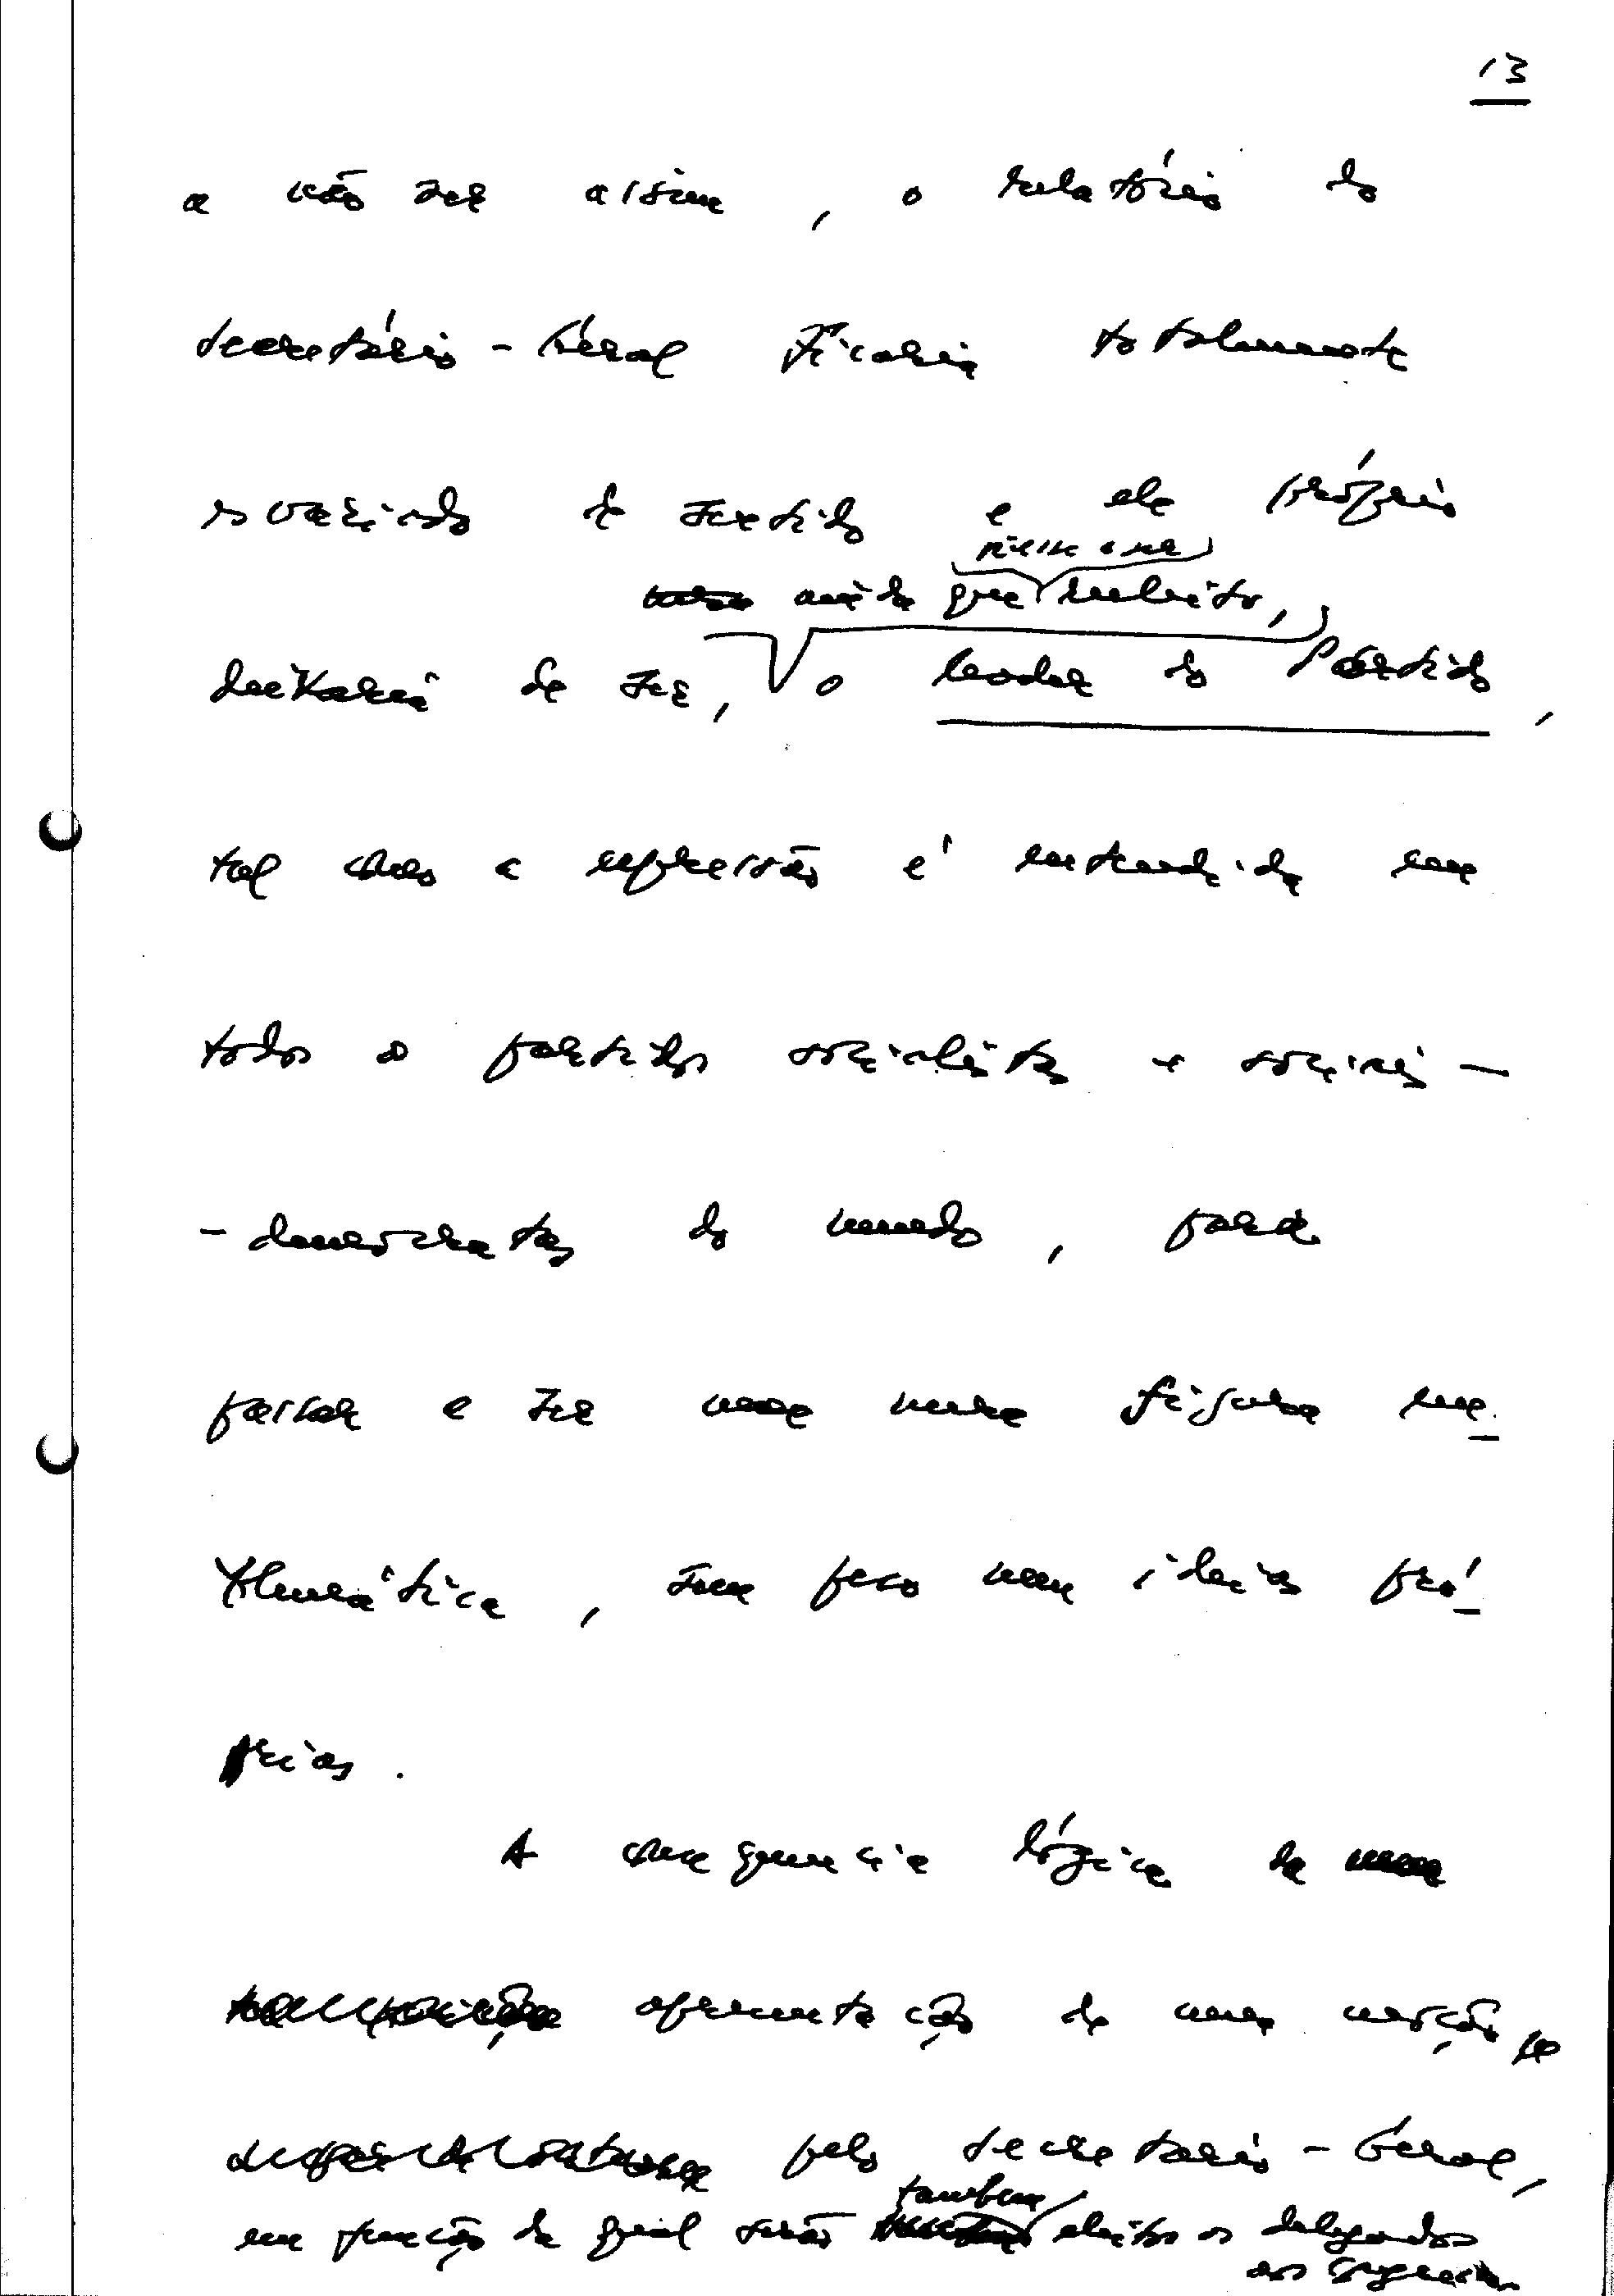 13
a não ser assim, o relatório do
Secretário-Geral ficaria totalmente
esvaziado de sentido e ele próprio
pudesse ser
ainda que reeleito,
deixaria de ser, o leader do Partido,
tal como a expressão é entendida em
todos os partidos socialistas e sociais-
-democratas do mundo, para
passar a ser uma mera figura em
blemática, sem peso nem ideias pró
prias.
A consequência lógica da
apresentação de uma moção
pelo Secretário-Geral,
também
em função da qual serão eleitos os delegados
ao Congresso